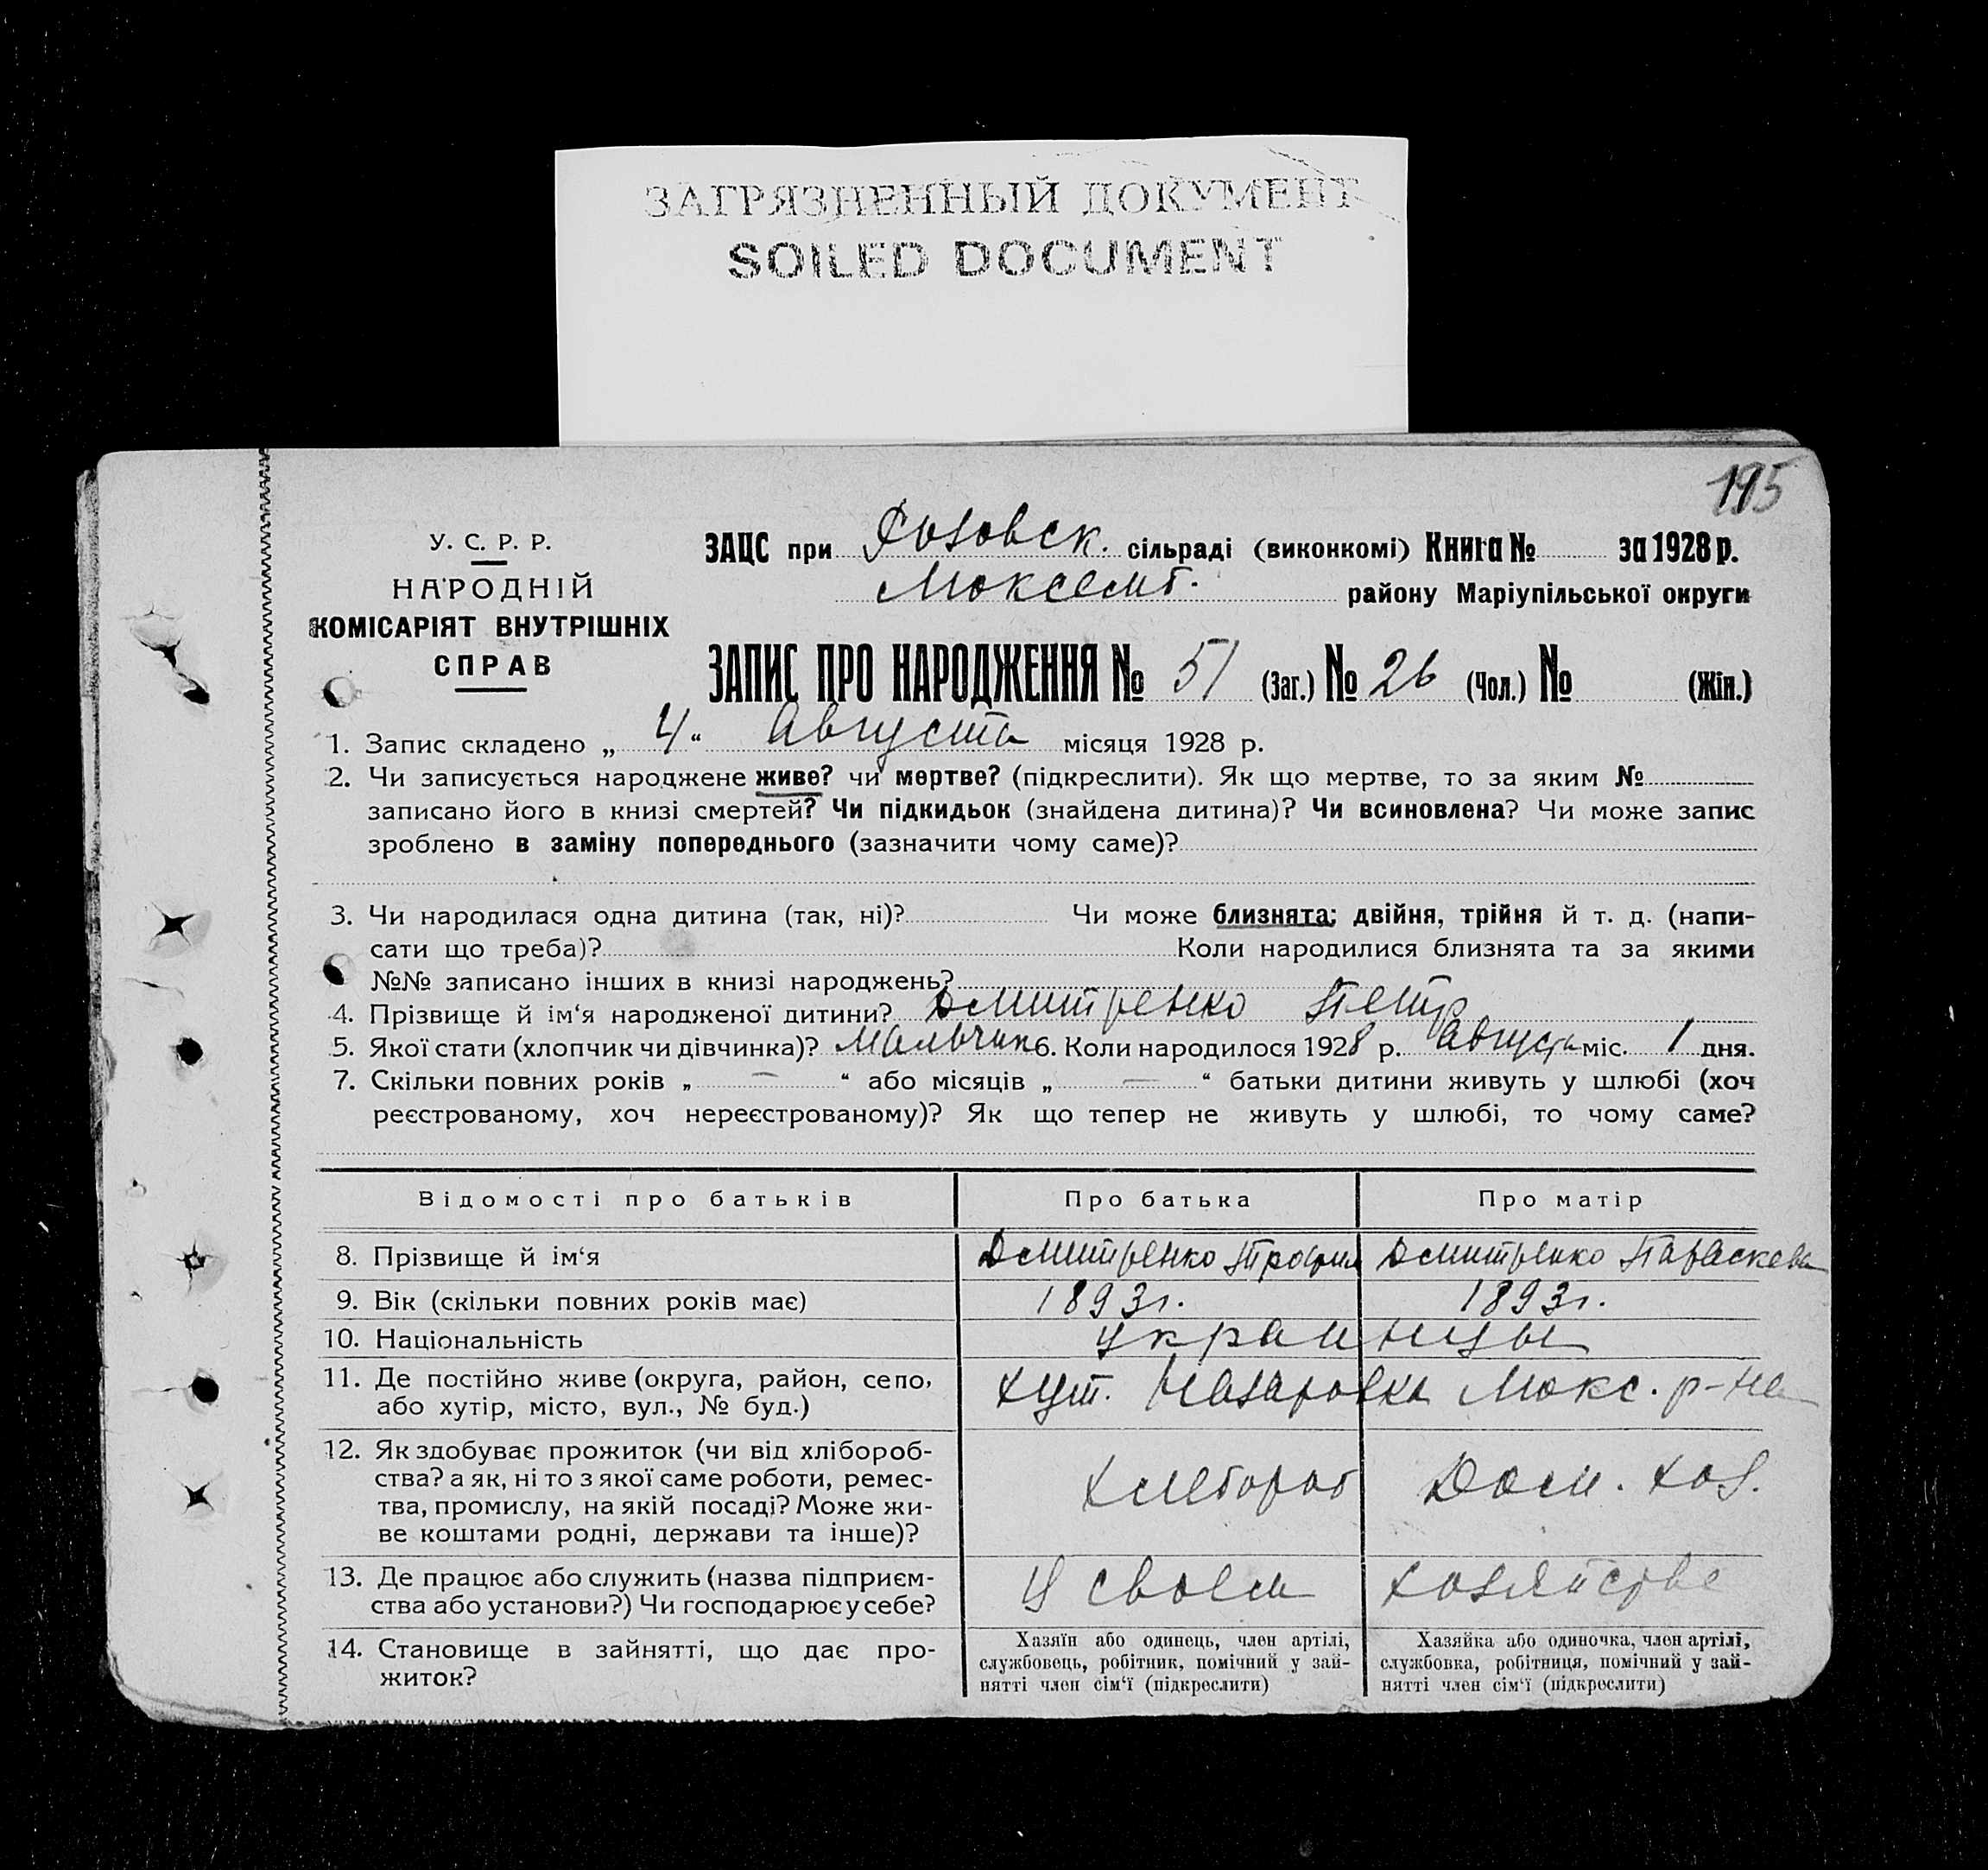 ЗАГРЯЗНЕННЫЙ ДОКУМЕНТ
SOILED DOCUMENT
195
У. С. Р. Р.
НАРОДНІЙ
КОМІСАРІЯТ ВНУТРІШНІХ
СПРАВ
ЗАЦС при Розовск. сільраді (виконкомі) Книга № за 1928 р.
району Маріупільської округи
ЗАПИС ПРО НАРОДЖЕННЯ № 51 (Заг.) № 26 (Чол.) № (Жін.)
1. Запис складено „ 4 “ Августа місяця 1928 р.
2. Чи записується народжене живе? чи мертве? (підкреслити). Як що мертве, то за яким №
записано його в книзі смертей? Чи підкидьок (знайдена дитина)? Чи всиновлена? Чи може запис
зроблено в заміну попереднього (зазначити чому саме)?
3. Чи народилася одна дитина (так, ні)? Чи може близнята; двійня, трійня й т. д. (напи-
сати що треба)? Коли народилися близнята та за якими
№№ записано інших в книзі народжень?
4. Прізвище й ім‘я народженої дитини? Дмитренко Петр
5. Якої стати (хлопчик чи дівчинка)? Мальчик 6. Коли народилося 1928 р. Августа міс. 1 дня.
7. Скільки повних років „ — “ або місяців „ — “ батьки дитини живуть у шлюбі (хоч
реєстрованому, хоч нереєстрованому)? Як що тепер не живуть у шлюбі, то чому саме?
Відомості про батьків Про батька Про матір
8. Прізвище й ім‘я Дмитренко Трофим Дмитренко Параскева
9. Вік (скільки повних років має) 1893г. 1893г.
10. Національність украинцы
11. Де постійно живе (округа, район, село,
або хутір, місто, вул., № буд.) хут. Назаровка Мокс. р-на
12. Як здобуває прожиток (чи від хлібороб-
ства? а як, ні то з якої саме роботи, ремес-
тва, промислу, на якій посаді? Може жи-
ве коштами родні, держави та інше)? Хлебороб Дом. хоз.
13. Де працює або служить (назва підприєм-
ства або установи?) Чи господарює у себе? У своем хозяйстве
14. Становище в зайнятті, що дає про-
житок?
Хазяїн або одинець, член артілі,
службовець, робітник, помічний у зай-
нятті член сім‘ї (підкреслити)
Хазяйка або одиночка, член артілі,
службовка, робітниця, помічний у зай-
нятті член сім‘ї (підкреслити)